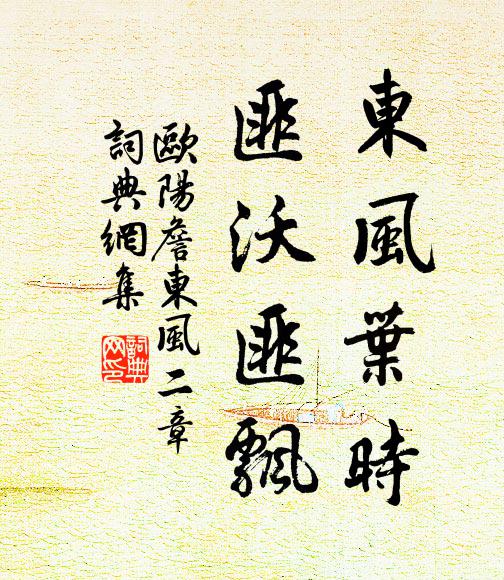 東風葉時
匪沃匪飄
歐陽詹東風二章
詞典網集
詞典
网印